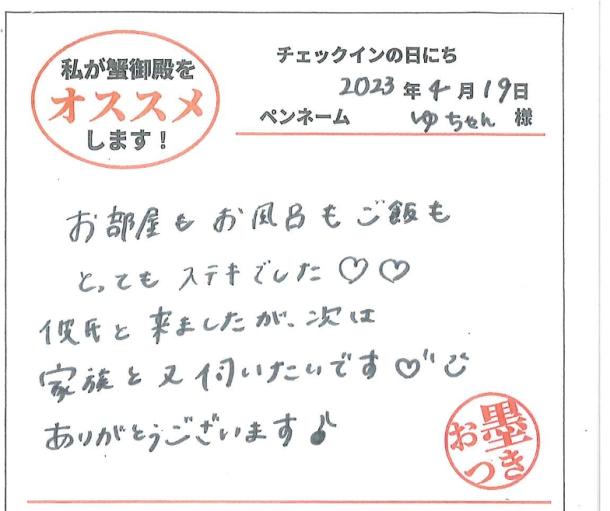 私が蟹御殿を
オススメ
します！
チェックインの日にち
2023 年 4 月 19 日
ペンネーム ゆちゃん 様
お部屋も お風呂も ご飯も
とっても ステキでした♡♡
彼氏と 来ましたが、次は
家族と 又 伺いたいです♡
ありがとうございます♪
お墨
つき